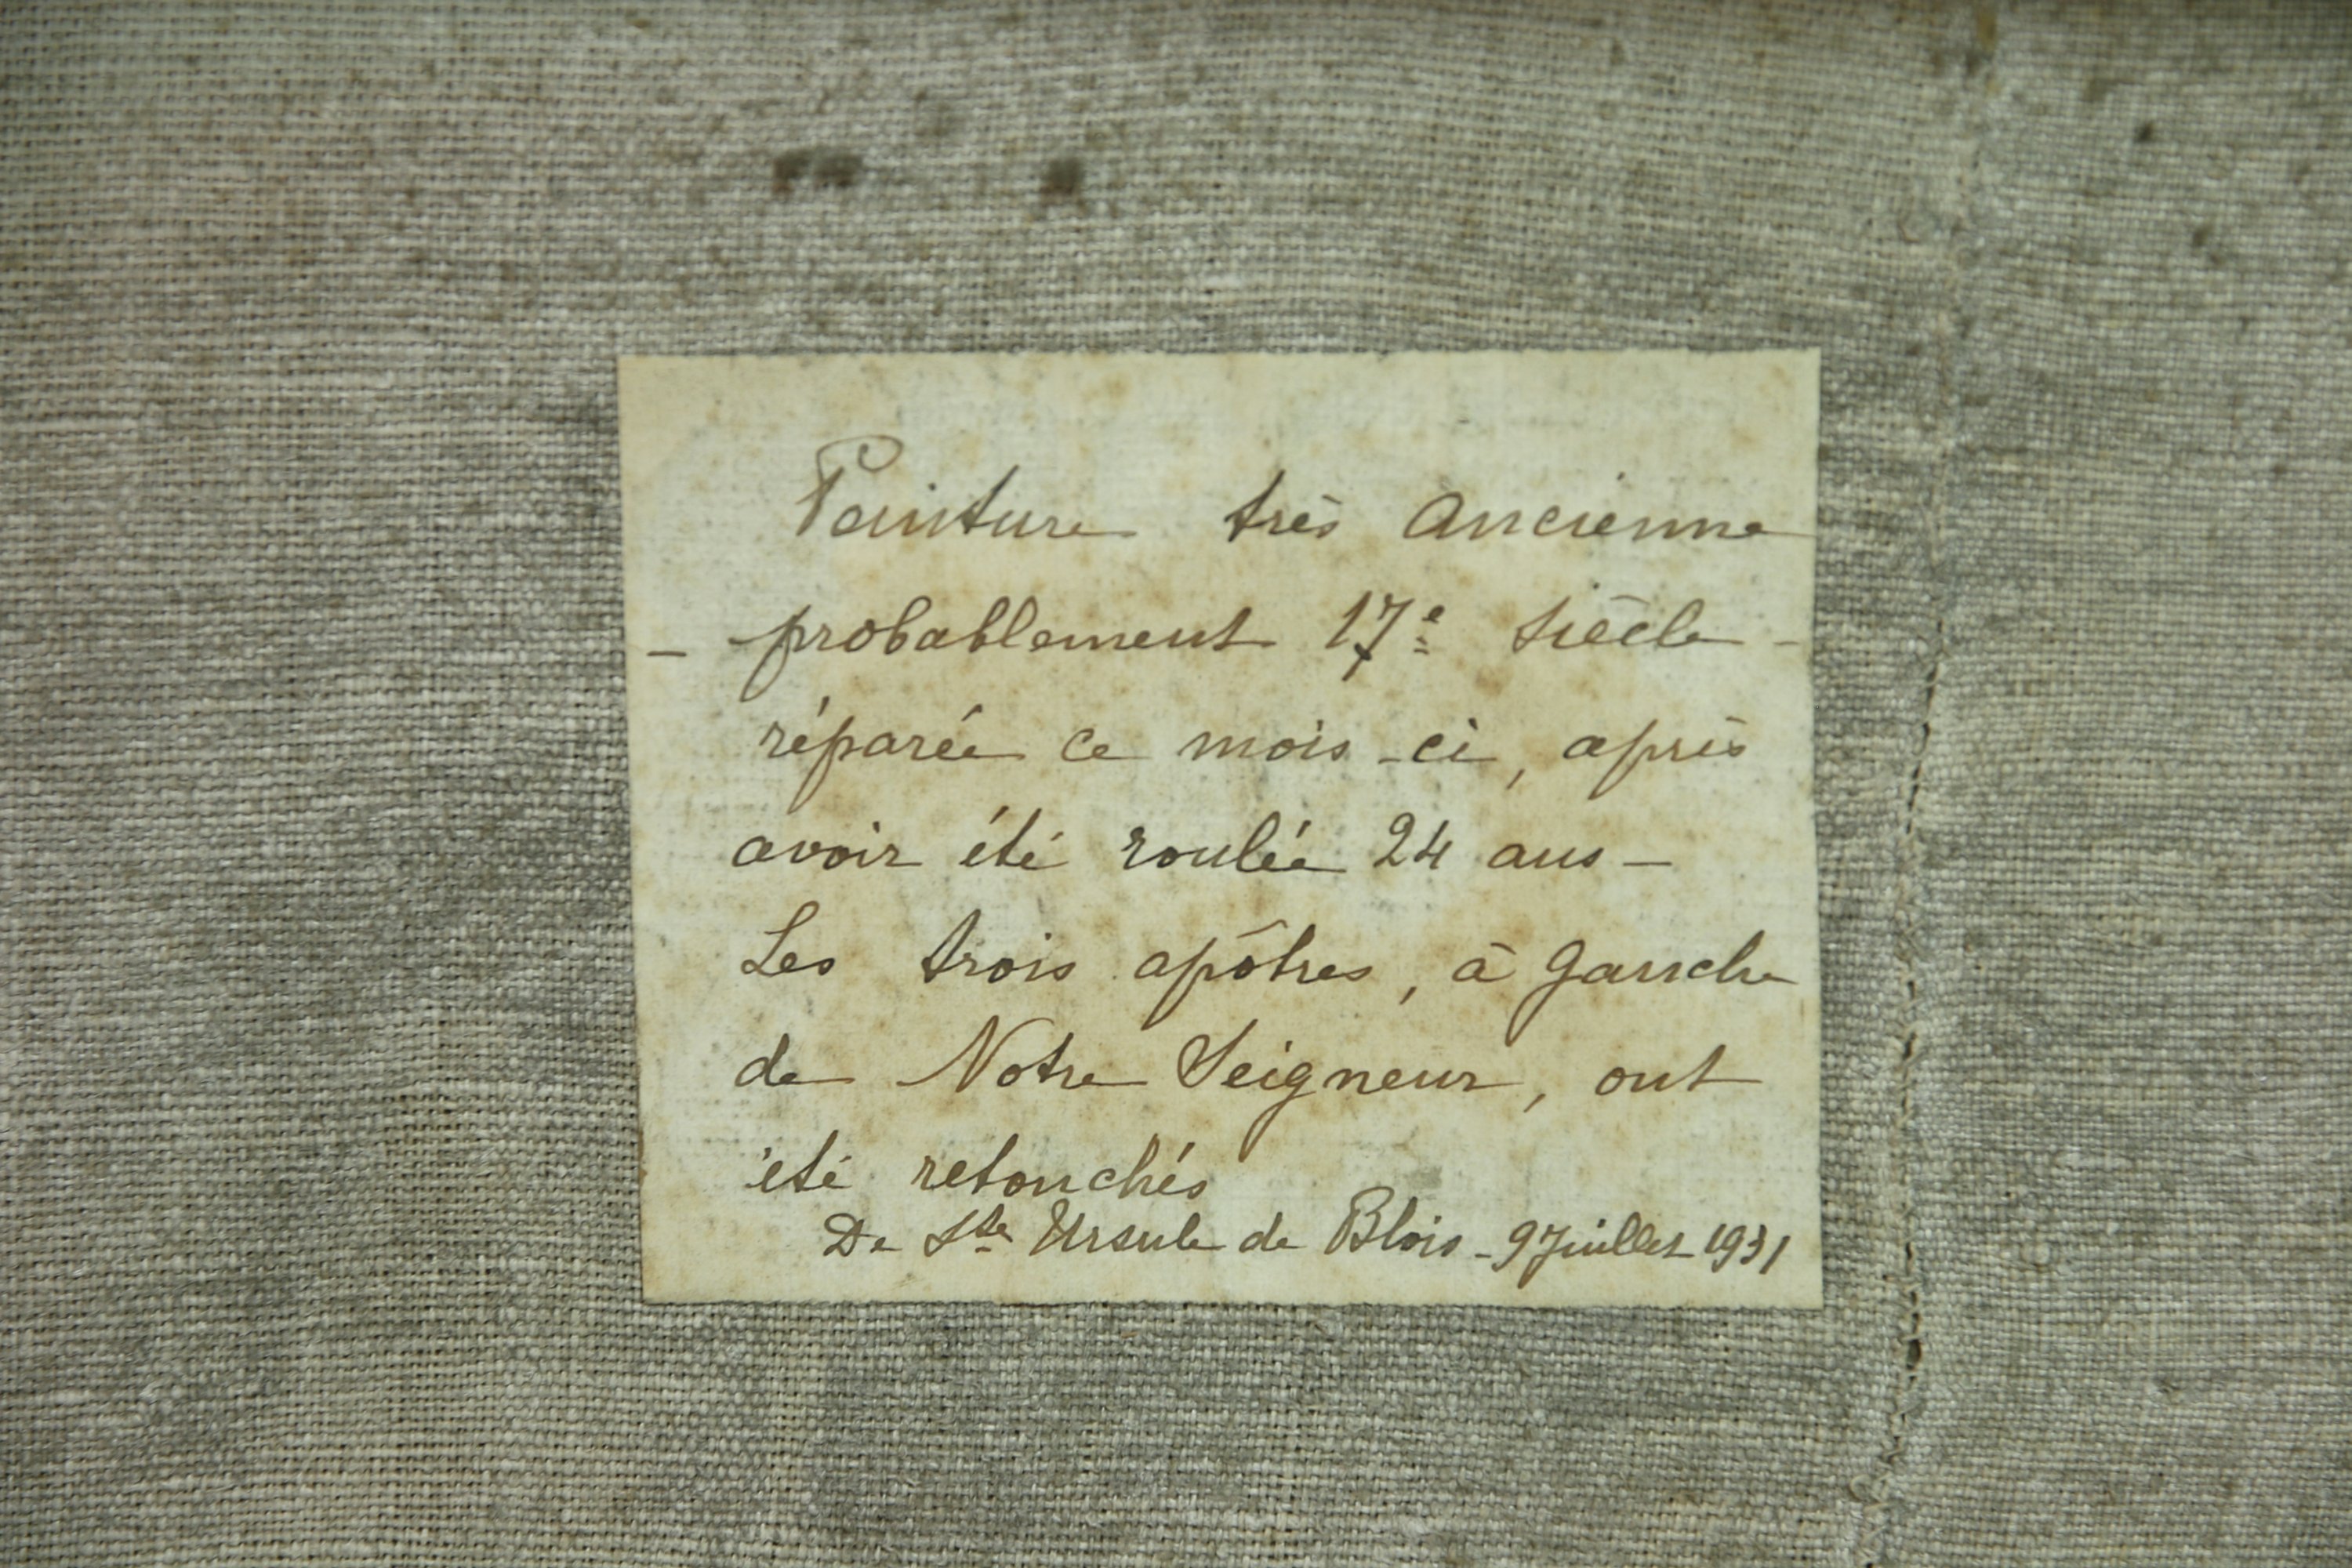 Peinture très Ancienne
- probablement 17e siècle -
réparée ce mois-ci, après
avoir été roulée 24 ans -
Les trois apôtres, à gauche
de Notre Seigneur, ont
été retouchés
De Ste Ursule de Blois - 9 Juillet 1931